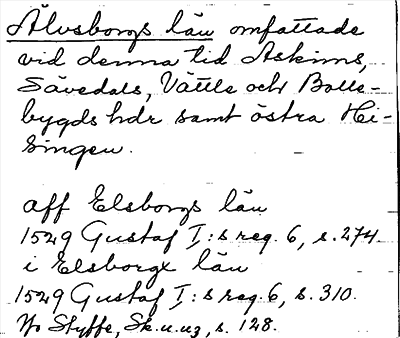 Älvsborgs län omfattade
vid denna tid Askims,
Sävedals, Vättle och Bolle-
bygds hdr samt östra Hi-
singen.
aff Elsborgs län
1529 Gustaf I:s reg. 6, s. 274
i Elsborgx län
1529 Gustaf I:s reg. 6, s. 310.
Styffe, Sk.u.u3, s. 128.